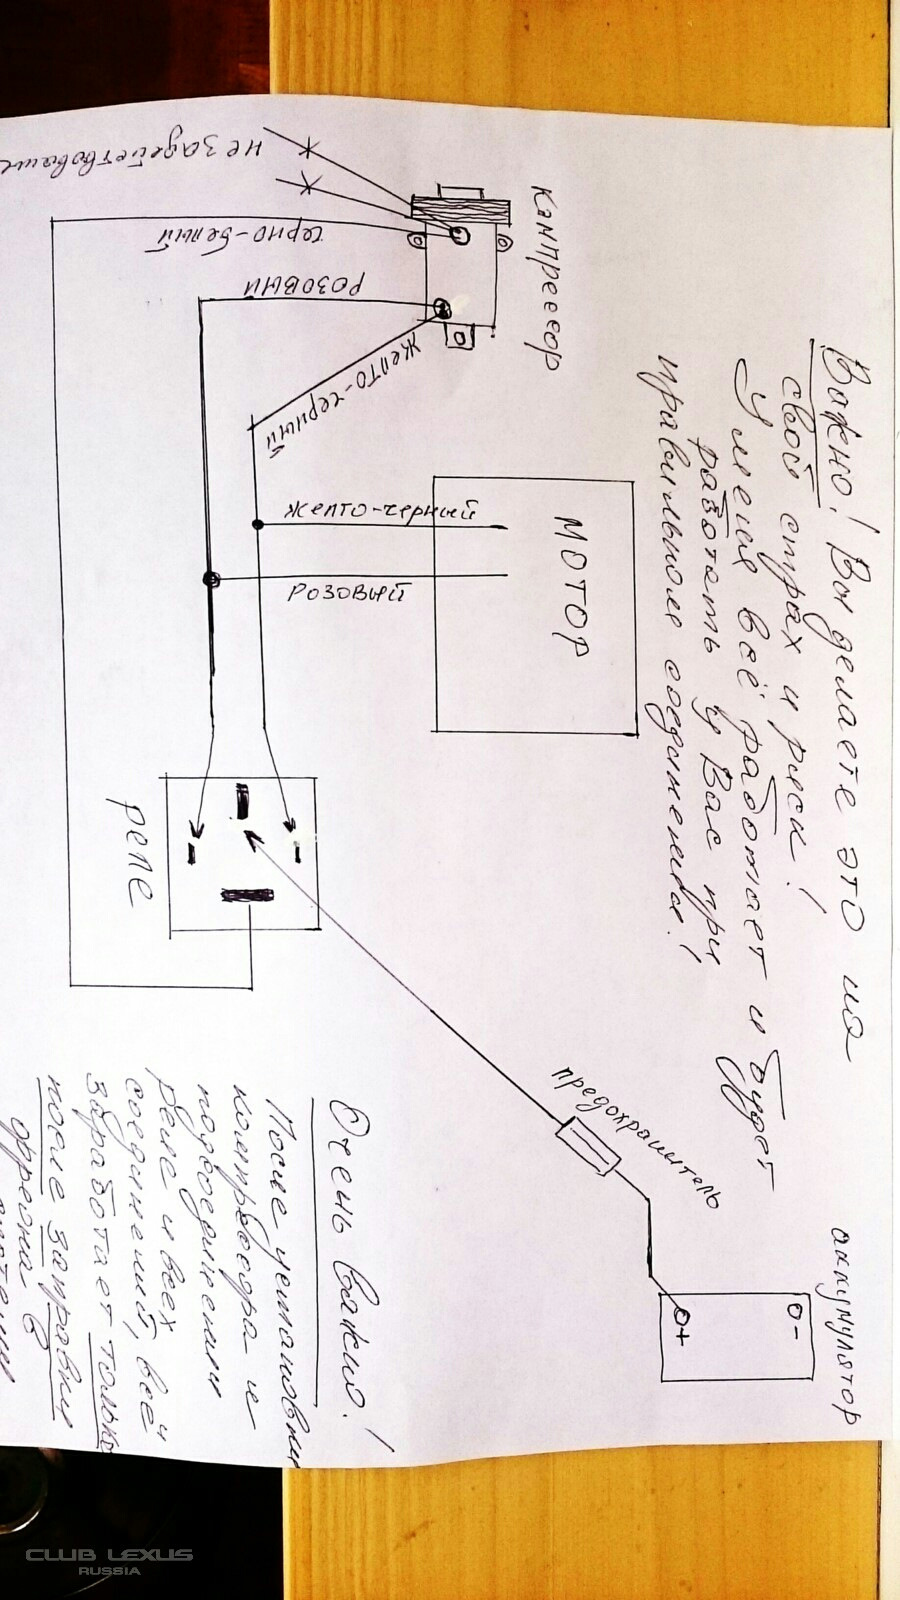 Важно! Вы делаете это на
свой страх и риск!
У меня всё работает и будет
работать у Вас при
правильном соединении!
Кампрессор
не задействованы
черно-белый
розовый
желто-черный
желто-черный
розовый
МОТОР
реле
предохранитель
аккумулятор
О-
О+
Очень важно!
После установки
компрессора и
подсоединении
реле и всех
соединений, всё
заработает только
после заправки
фреона в
CLUB LEXUS
RUSSIA